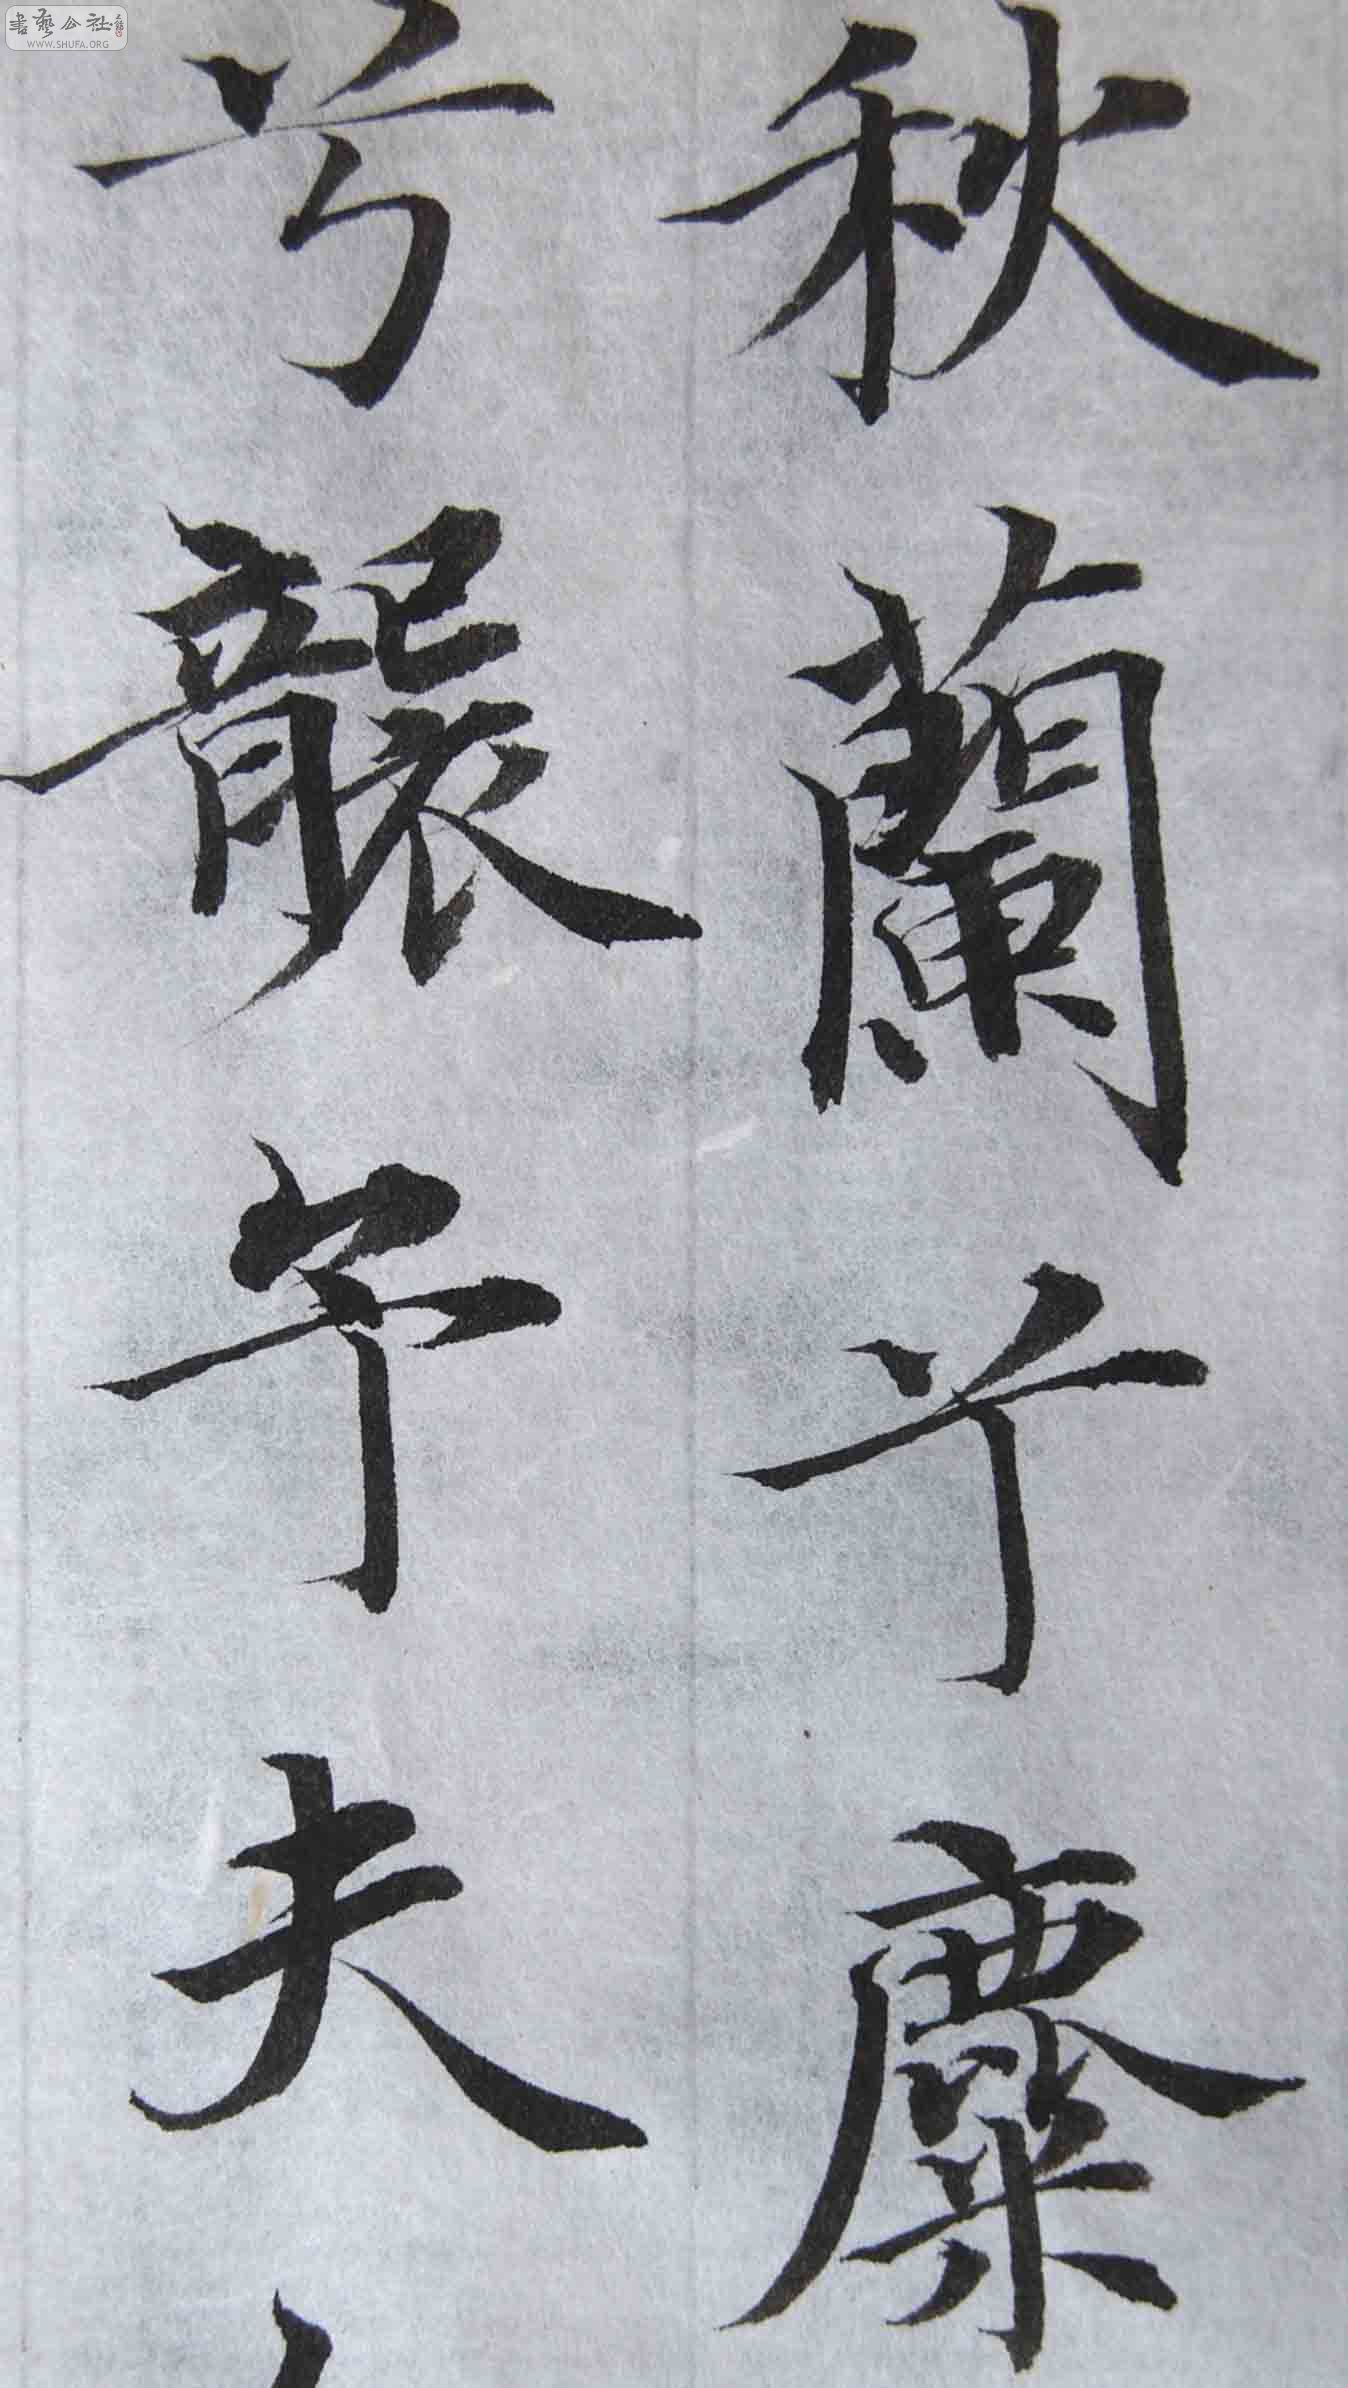 秋蘭兮麋
兮襲予夫
書藝公社
WWW.SHUFA.ORG